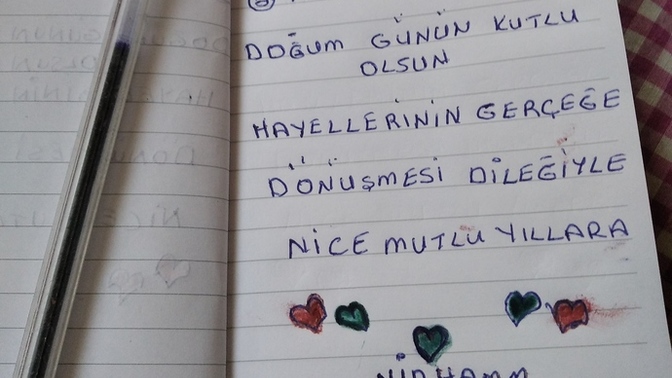 DOĞUM GÜNÜN KUTLU
OLSUN
HAYELLERİNİN GERÇEĞE
DÖNÜŞMESİ DİLEĞİYLE
NİCE MUTLU YILLARA